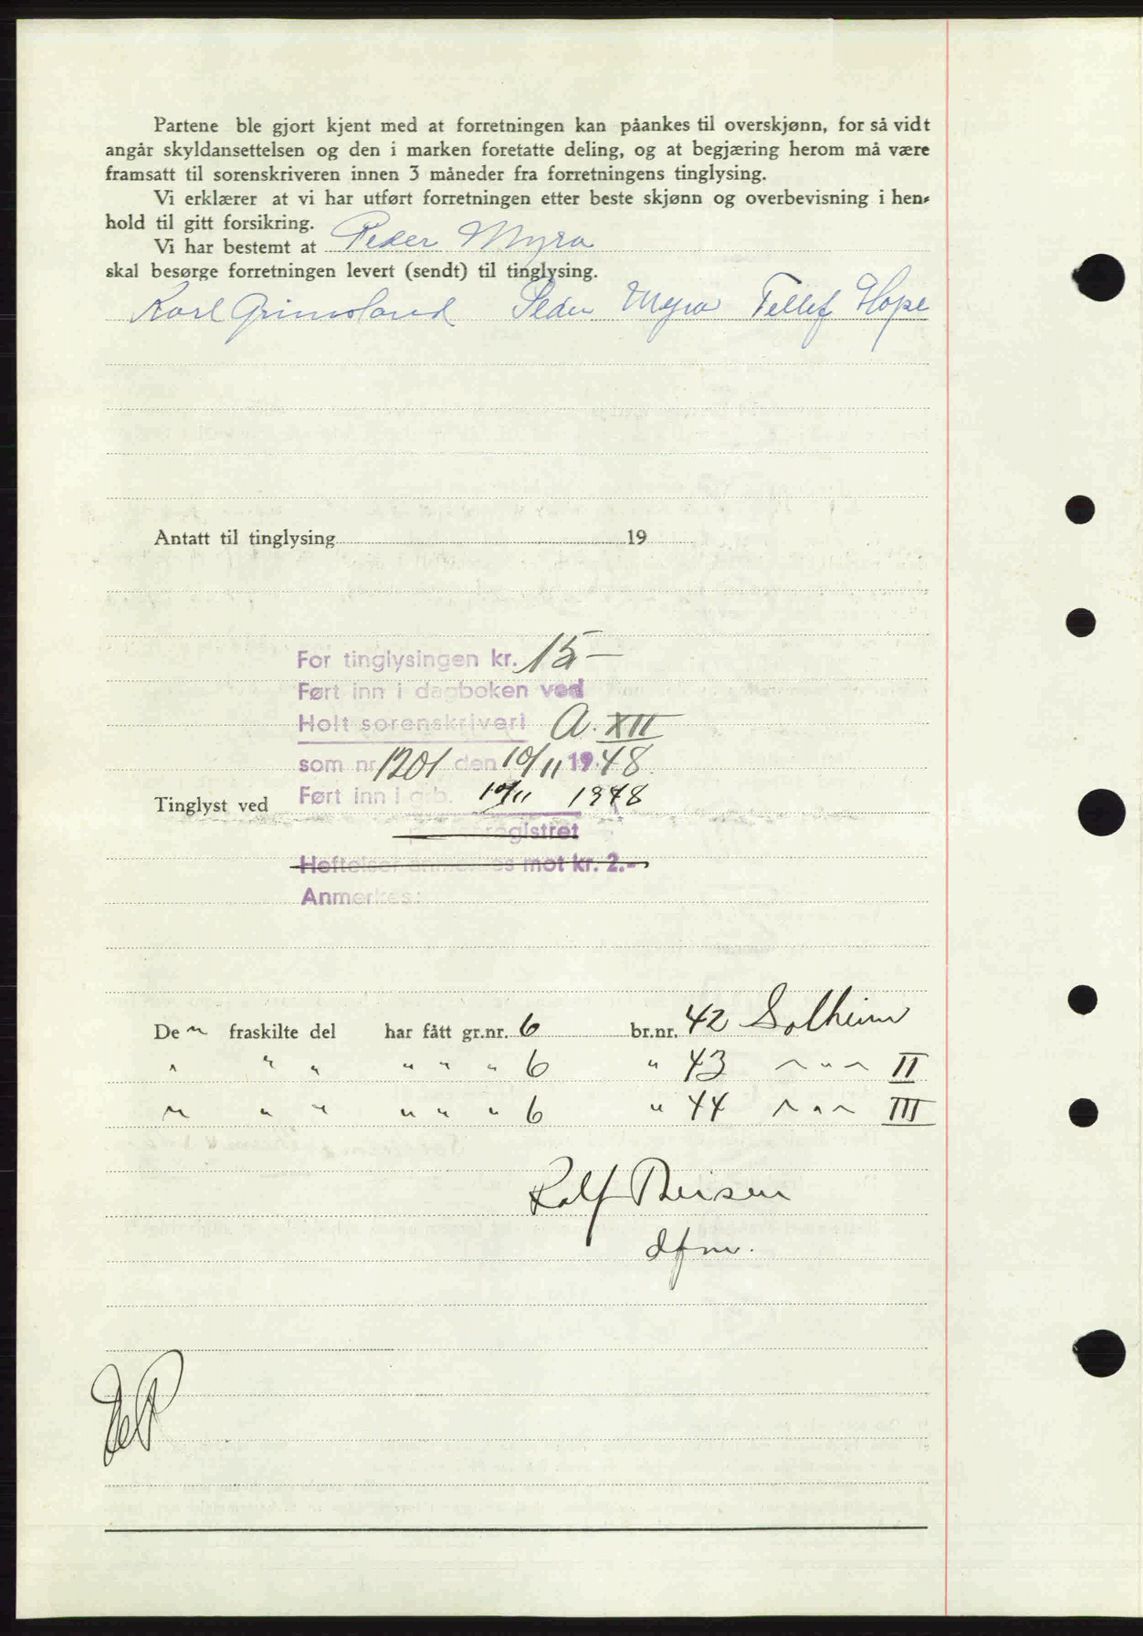 Partene ble gjort kjent med at forretningen kan påankes til overskjønn, for så vidt
angår skyldansettelsen og den i marken foretatte deling, og at begjæring herom må være
framsatt til sorenskriveren innen 3 måneder fra forretningens tinglysing.
Vi erklærer at vi har utført forretningen etter beste skjønn og overbevisning i hen-
hold til gitt forsikring.
Vi har bestemt at Peder Myra
skal besørge forretningen levert (sendt) til tinglysing.
Karl Grimsland Peder Myra Tellef Hope
Antatt til tinglysing 19
For tinglysingen kr. 15-
Ført inn i dagboken ved
Holt sorenskriveri A. XII
som nr. 1201 den 10/11 1948
Tinglyst ved Ført inn i g.b. 10/11 1948
registret
Heftelser anmerkes mot kr. 2.-
Anmerkes:
De n fraskilte del har fått gr.nr. 6 br.nr. 42 Solheim
" " " " " " 6 " 43 " " " II
" " " " " " 6 " 44 " " " III
Rolf Theisen
dfm.